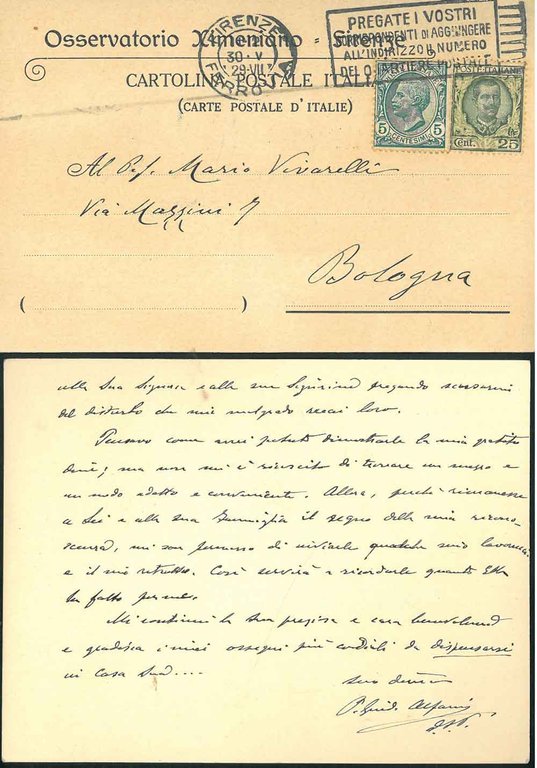 Osservatorio Ximeniano - Firenze
CARTOLINA POSTALE ITALIANA
(CARTE POSTALE D'ITALIE)
FIRENZE
30·V
29·VII
FERROVIA
PREGATE I VOSTRI
CORRISPONDENTI DI AGGIUNGERE
ALL'INDIRIZZO IL NUMERO
DEL QUARTIERE POSTALE
5 CENTESIMI 5
POSTE ITALIANE
Cent. 25
Al P.f. Mario Vivarelli
Via Mazzini 7
Bologna
alla Sua Signora e alla sua Signorina pregando scusarmi
del disturbo che mio malgrado recai loro.
Pensavo come avrei potuto dimostrarle la mia gratitu
dine; ma non mi è riuscito di trovare un mezzo e
un modo adatto e conveniente. Allora, perchè rimanesse
a Lei e alla sua Famiglia il segno della mia ricono-
scenza, mi son permesso di inviarle qualche mio lavoruccio
e il mio ritratto. Così servirà a ricordarle quanto Ella
ha fatto per me.
Mi continui la Sua preziosa e cara benevolenza
e gradisca i miei ossequi più cordiali da dispensarsi
in casa Sua....
Suo dev.mo
P. Guido Alfani
d.S.P.